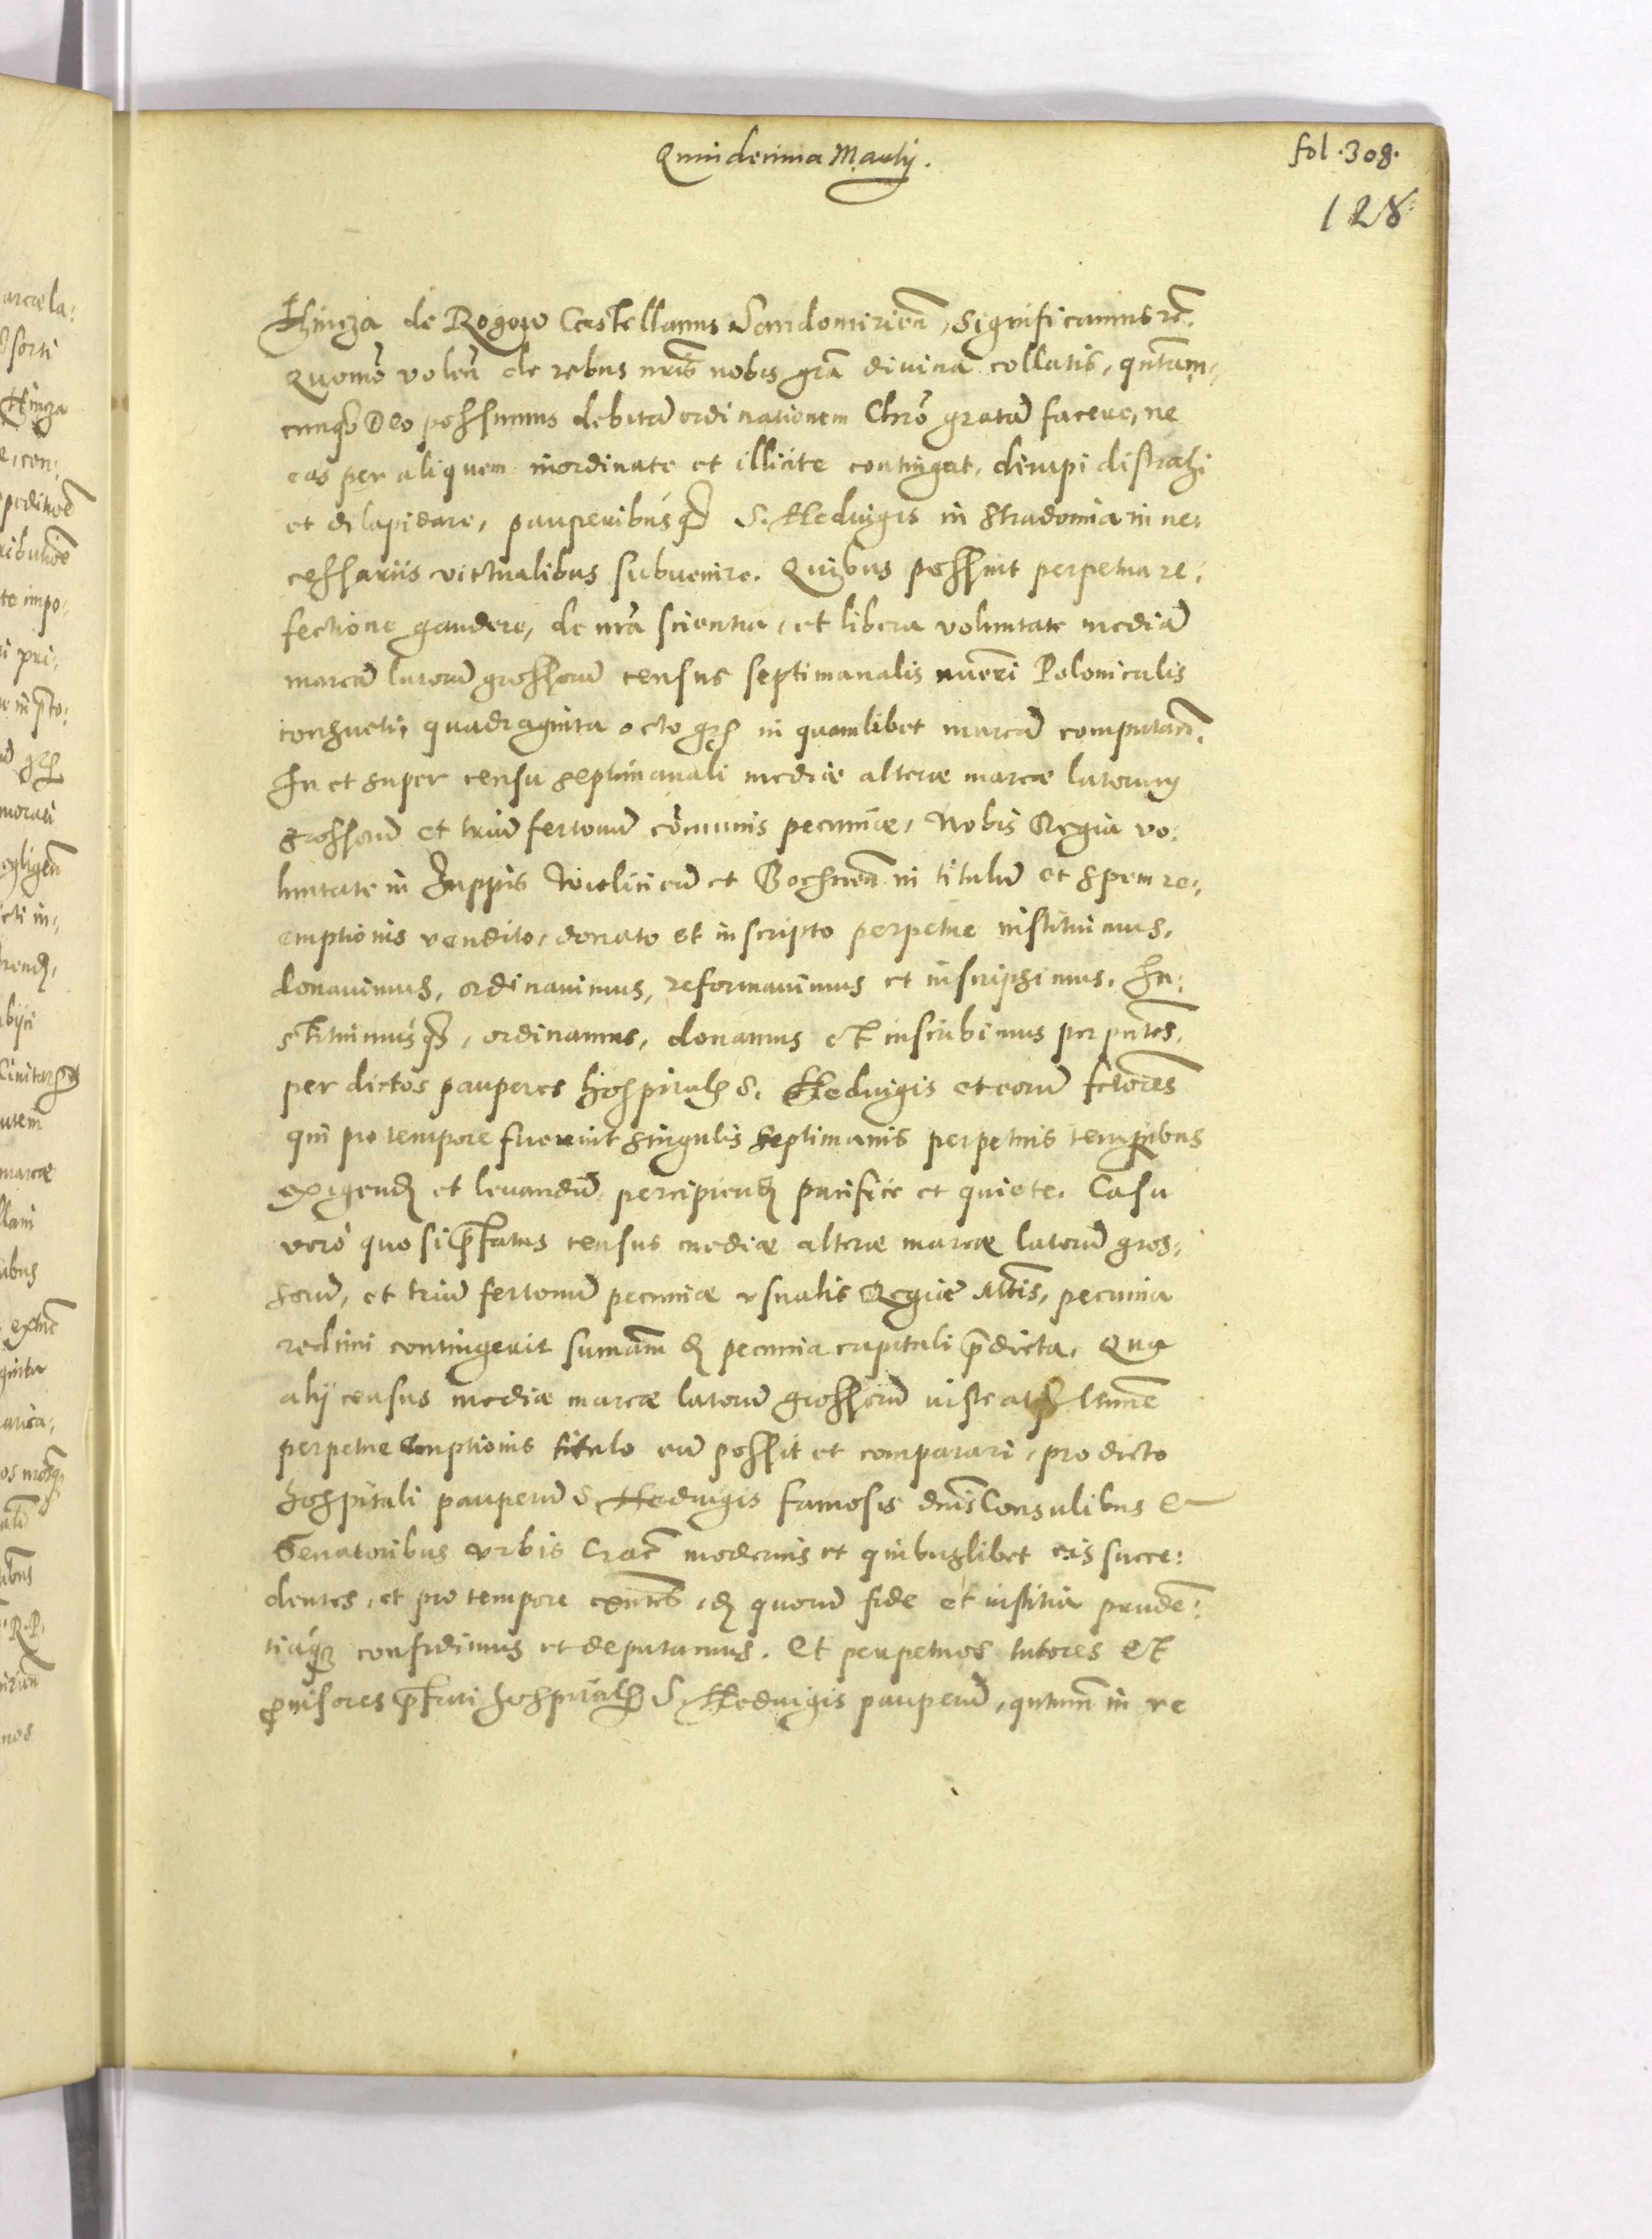 Quindecima Martij.
fol. 308.
128
Hincza de Rogow Castellanus Sandomirien̄, Significamus rc̄.
Quomō volen̄ de rebus nr̄is nobis gr̄a divina collatis, qn̄tum,
cunq̄ Deo possumus debitā ordinationem Chr̄o gratā facere, ne
eas per aliquem inordinate et illicite contingat, dirupi distrahi
et dilapidare, pauperibusq̄ S. Hedvigis in Stradomia in ne:
cessariis victualibus subvenire. Quibus possint perpetua re:
fectione gaudere, de nr̄a scientia, et libera voluntate mediā
marcā latorū grossorū census septimanalis nūeri Polonicalis
consueti, quadraginta octo grs̄ in quamlibet marcā computan̄.
In et super censu septimanali mediæ alteræ marcæ latorum
grossorū et triū fertonū cōmunis pecuniæ, Nobis Regia vo:
luntate in Zuppis Wielicien̄ et Bochnen̄ in titulū et spem re:
emptionis vendito, donato et inscripto perpetue instituimus,
donavimus, ordinavimus, reformavimus et inscripsimus. In:
stituimusq̄, ordinamus, donamus et inscribimus per pn̄tes,
per dictos pauperes hospital̄ S. Hedvigis et eorū fctores
qui pro tempore fuerint singulis septimanis perpetuis temp̄ibus
exigend̄ et levandū percipiend̄ pacifice et quiete. Casu
vero quo si p̄fatus census mediæ alteræ marcæ latorū gros:
sorū, et triū fertonū pecuniæ usualis Regiæ Mt̄is, pecunia
redimi contingerit sumam̄ d̄ pecunia capitali p̄dicta. Qua
alij census mediæ marcæ latorū grossorū iuste atq̄ ltime
perpetue emptionis titulo em̄ possit et comparari, pro dicto
hospitali pauperū S. Hedvigis famosis dn̄is Consulibus et
Senatoribus urbis Crac̄ modernis et quibuslibet eis succe:
dentes, et pro tempore exn̄tes, d̄ quorū fide et iustitia prudē:
tiaq̄ confidimus et deputamus. Et perpetuos tutores et
p̄visores p̄fati hospital̄ S. Hedvigis pauperū, qn̄tum̄ in re